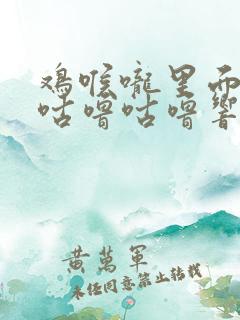 鸡喉咙里而
咕噜咕噜响
黄万军
未经同意禁止转载